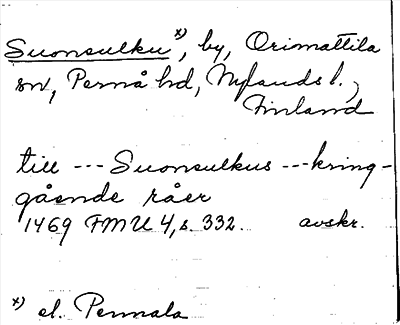 Suonsulku x), by, Orimattila
sn, Pernå hd, Nylands l.,
Finland
till --- Suonsulkus --- kring-
gående råer
1469 FMU 4, s. 332. avskr.
x) el. Pennala